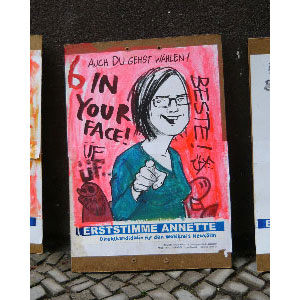 AUCH DU GEHST WÄHLEN!
6 IN
YOUR
FACE!
BESTE!
UF
UF
ERSTSTIMME ANNETTE
Direktkandidatin für den Wahlkreis Neukölln